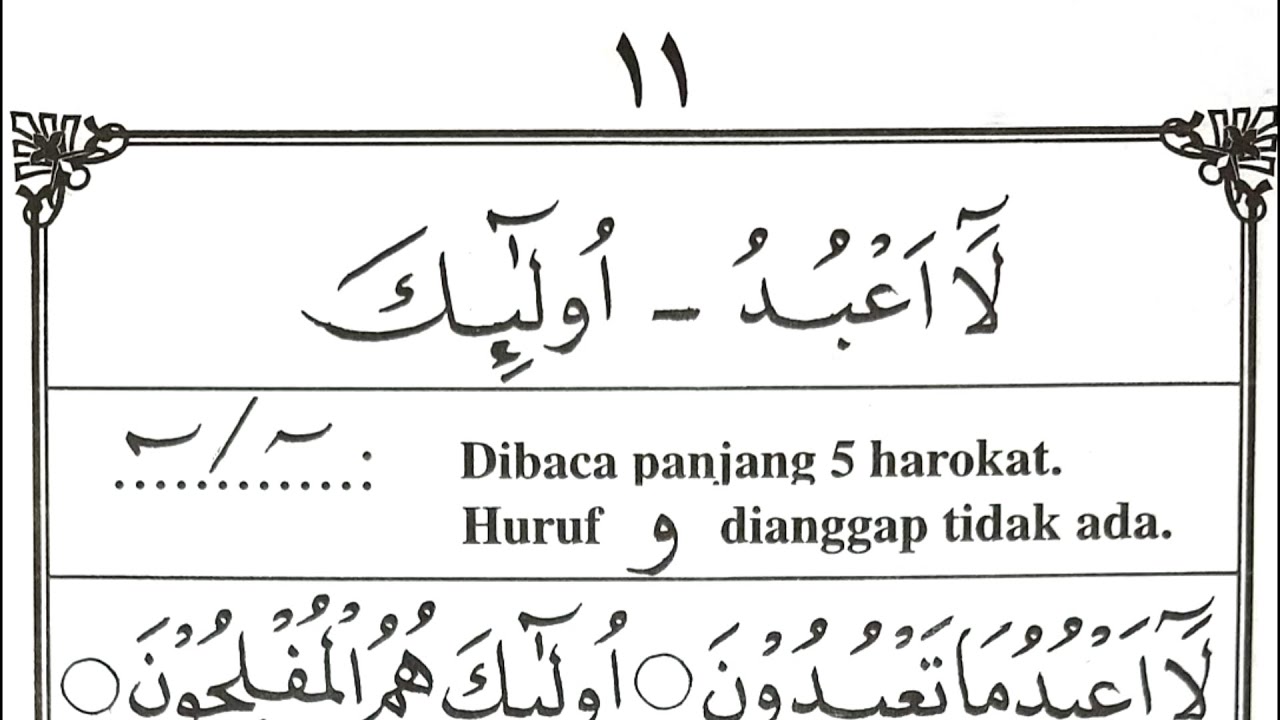 ١١
لَآ اَعْبُدُ - اُولٰٓئِكَ
: ~ / ~ Dibaca panjang 5 harokat.
Huruf و dianggap tidak ada.
لَآ اَعْبُدُ مَا تَعْبُدُوْنَ ○ اُولٰٓئِكَ هُمُ الْمُفْلِحُوْنَ ○